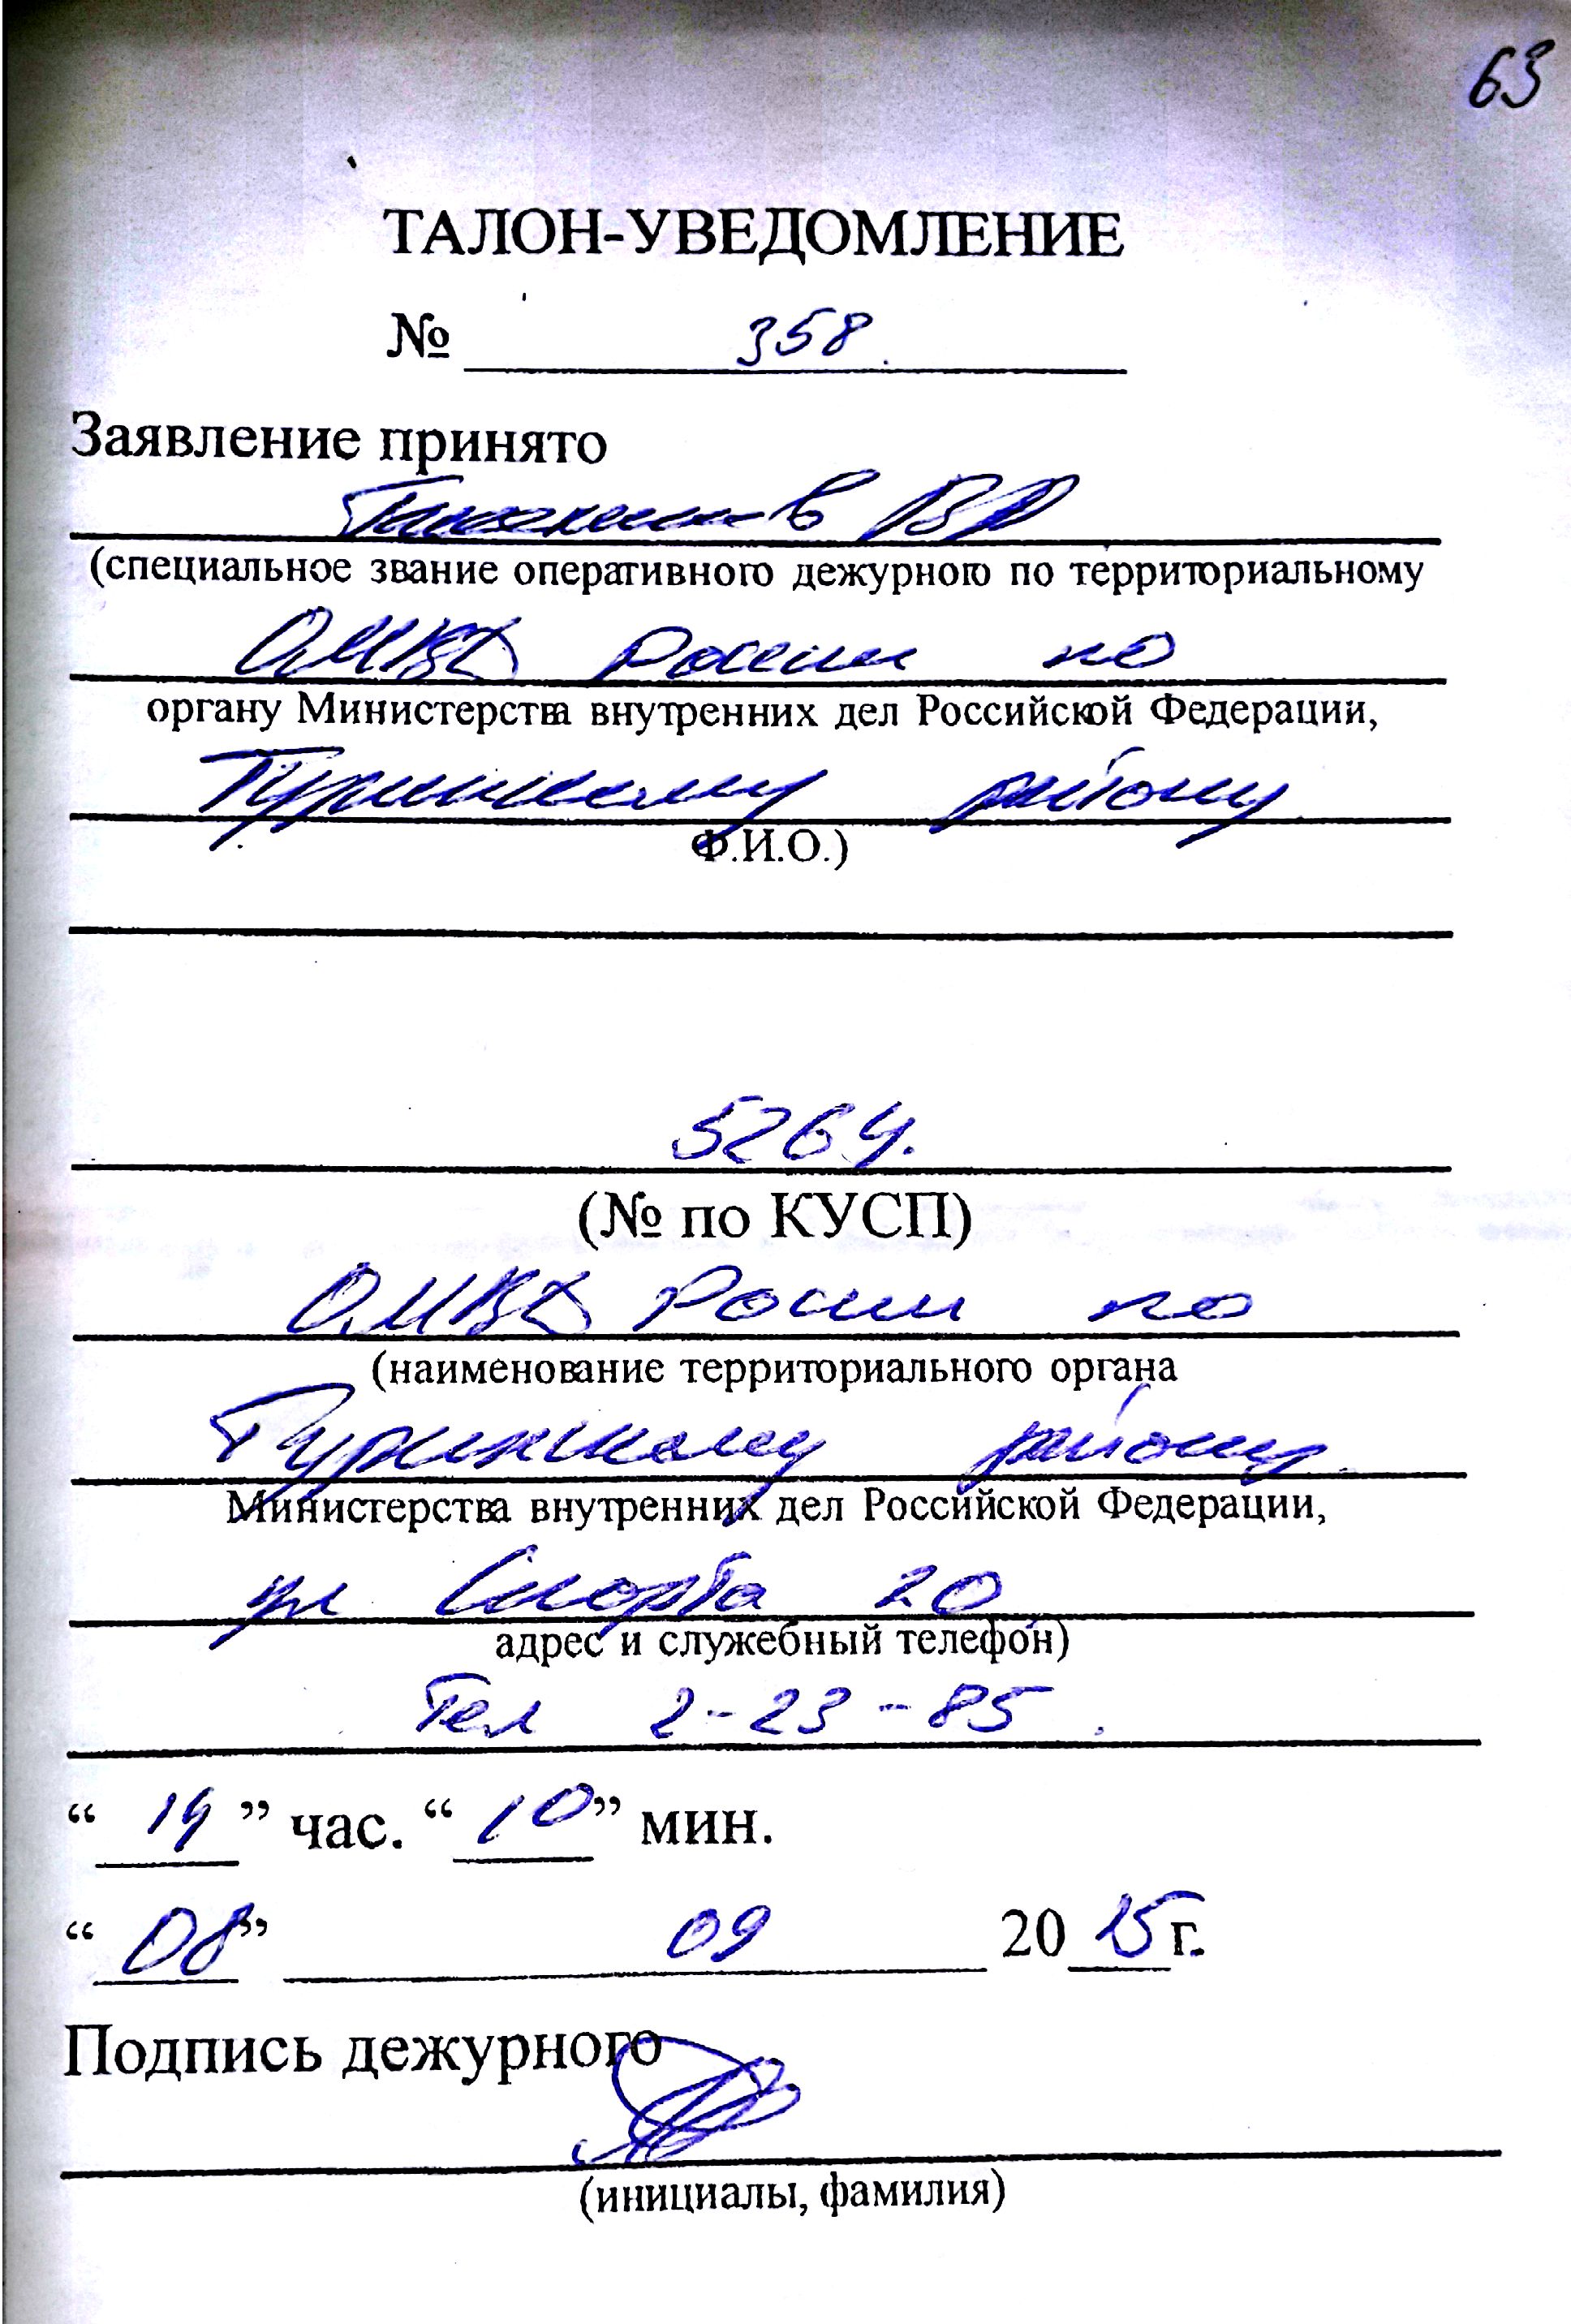 63
ТАЛОН-УВЕДОМЛЕНИЕ
№ 358
Заявление принято
(специальное звание оперативного дежурного по территориальному
ОМВД России по
органу Министерства внутренних дел Российской Федерации,
Туринскому району
Ф.И.О.)
5264.
(№ по КУСП)
ОМВД России по
(наименование территориального органа
Туринскому району
Министерства внутренних дел Российской Федерации,
ул Спорта 20
адрес и служебный телефон)
Тел 2-23-85.
“ 14 ” час. “ 10 ” мин.
“ 08 ” 09 20 15 г.
Подпись дежурного
(инициалы, фамилия)